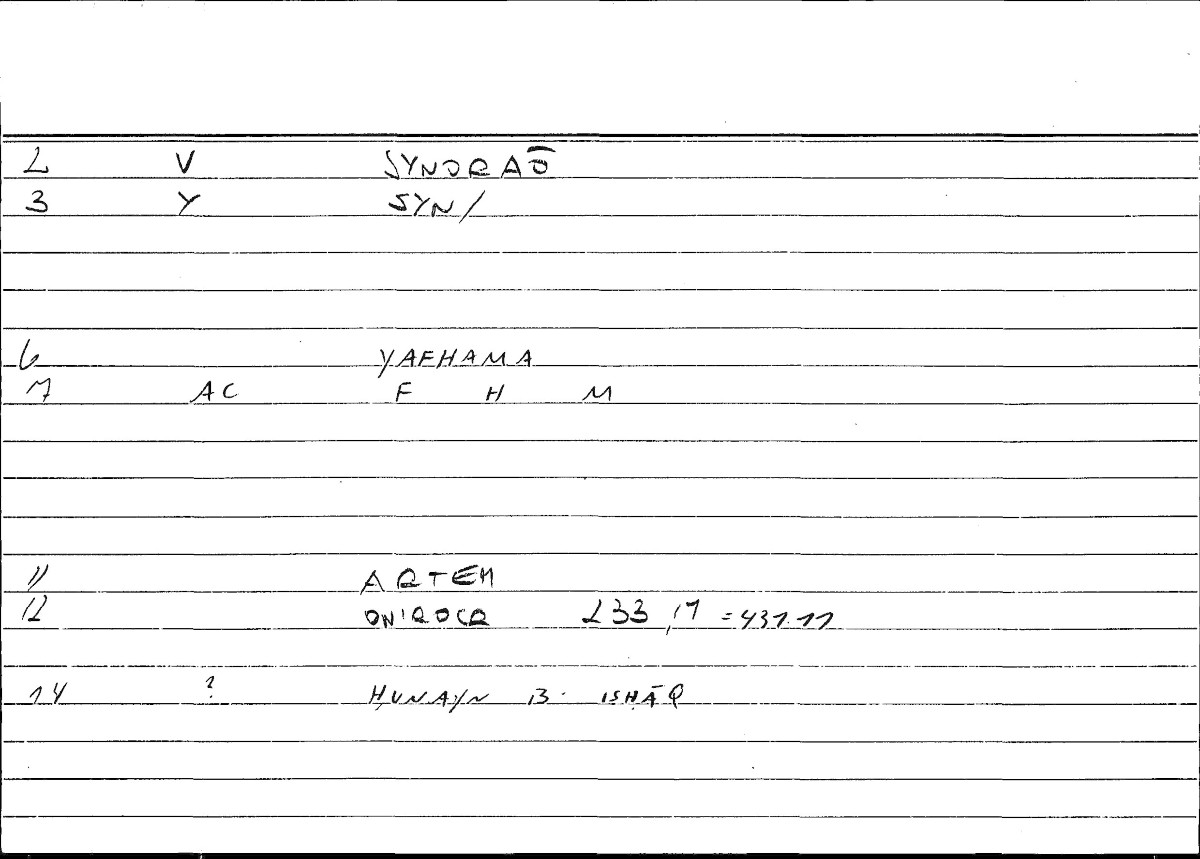 2 V SYNORAŌ
3 Y SYN/
6 YAFHAMA
7 AC F H M
11 ARTEM
12 ONIROCR 233,17 = 431.11
14 ? ḤUNAYN B. ISḤĀQ